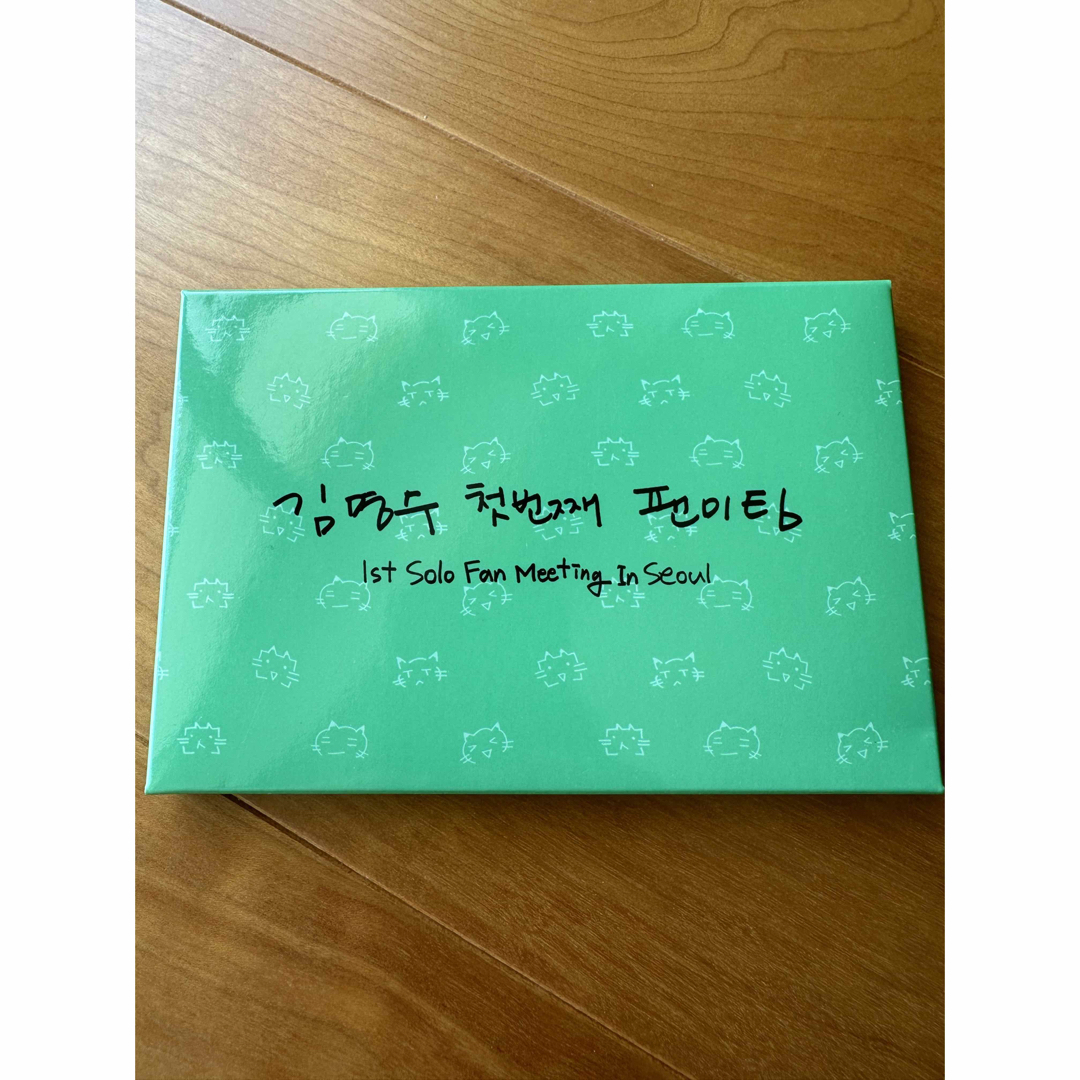 김명수 첫번째 팬미팅
1st Solo Fan Meeting In Seoul